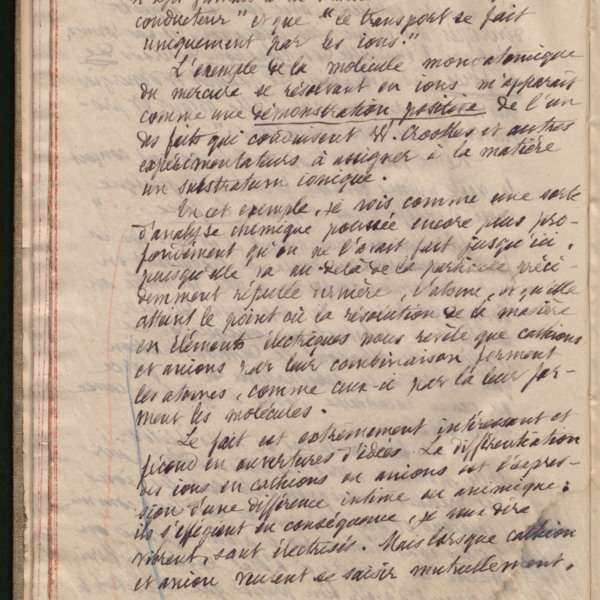 conducteur" et que "le transport se fait
uniquement par les ions."
L'exemple de la molécule monoatomique
du mercure se résolvant en ions m'apparaît
comme une démonstration positive de l'un
des faits qui conduisent W. Crookes et autres
expérimentateurs à assigner à la matière
un substratum ionique.
En cet exemple, je vois comme une sorte
d'analyse chimique poussée encore plus pro-
fondément qu'on ne l'avait fait jusqu'ici,
puisqu'elle va au-delà de la particule préci-
demment réputée dernière, l'atome, et qu'elle
atteint le point où la résolution de la matière
en éléments électriques nous révèle que cathions
et anions par leur combinaison forment
les atomes, comme ceux-ci par la leur for-
ment les molécules.
Le fait est extrêmement intéressant et
fécond en ouvertures d'idées. La différentiation
des ions en cathions ou anions est l'expres-
sion d'une différence intime ou animique:
ils s'effigient en conséquence, je veux dire
vibrent, sont électrisés. Mais lorsque cathion
et anion veulent se saisir mutuellement,